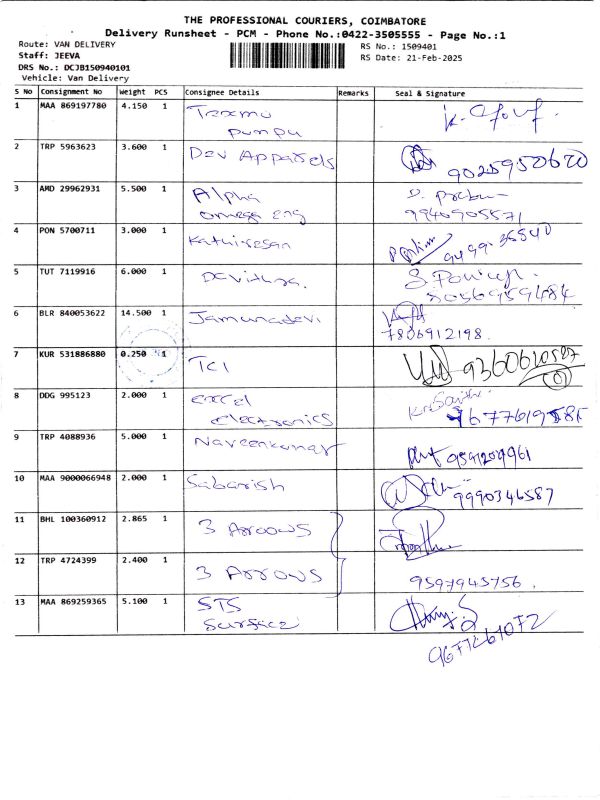 THE PROFESSIONAL COURIERS, COIMBATORE
Delivery Runsheet - PCM - Phone No.:0422-3505555 - Page No.:1
Route: VAN DELIVERY RS No.: 1509401
Staff: JEEVA RS Date: 21-Feb-2025
DRS No.: DCJB150940101
Vehicle: Van Delivery
S No Consignment No Weight PCS Consignee Details Remarks Seal & Signature
1 MAA 869197780 4.150 1 Texmo
pumpu
2 TRP 5963623 3.600 1 Dev Apparels
9025950620
3 AMD 29962931 5.500 1 Alpha
omega eng
9940905571
4 PON 5700711 3.000 1 Kathiresan
5 TUT 7119916 6.000 1
6 BLR 840053622 14.500 1 Jamunadevi
7806912198
7 KUR 531886880 0.250 1 TCI
8 DDG 995123 2.000 1 excel
electronics
9 TRP 4088936 5.000 1 Naveenkumar
10 MAA 9000066948 2.000 1 Sabarish
9990346587
11 BHL 100360912 2.865 1 3 Arrows
12 TRP 4724399 2.400 1 3 Arrows
9597945756
13 MAA 869259365 5.100 1 STS
Surface